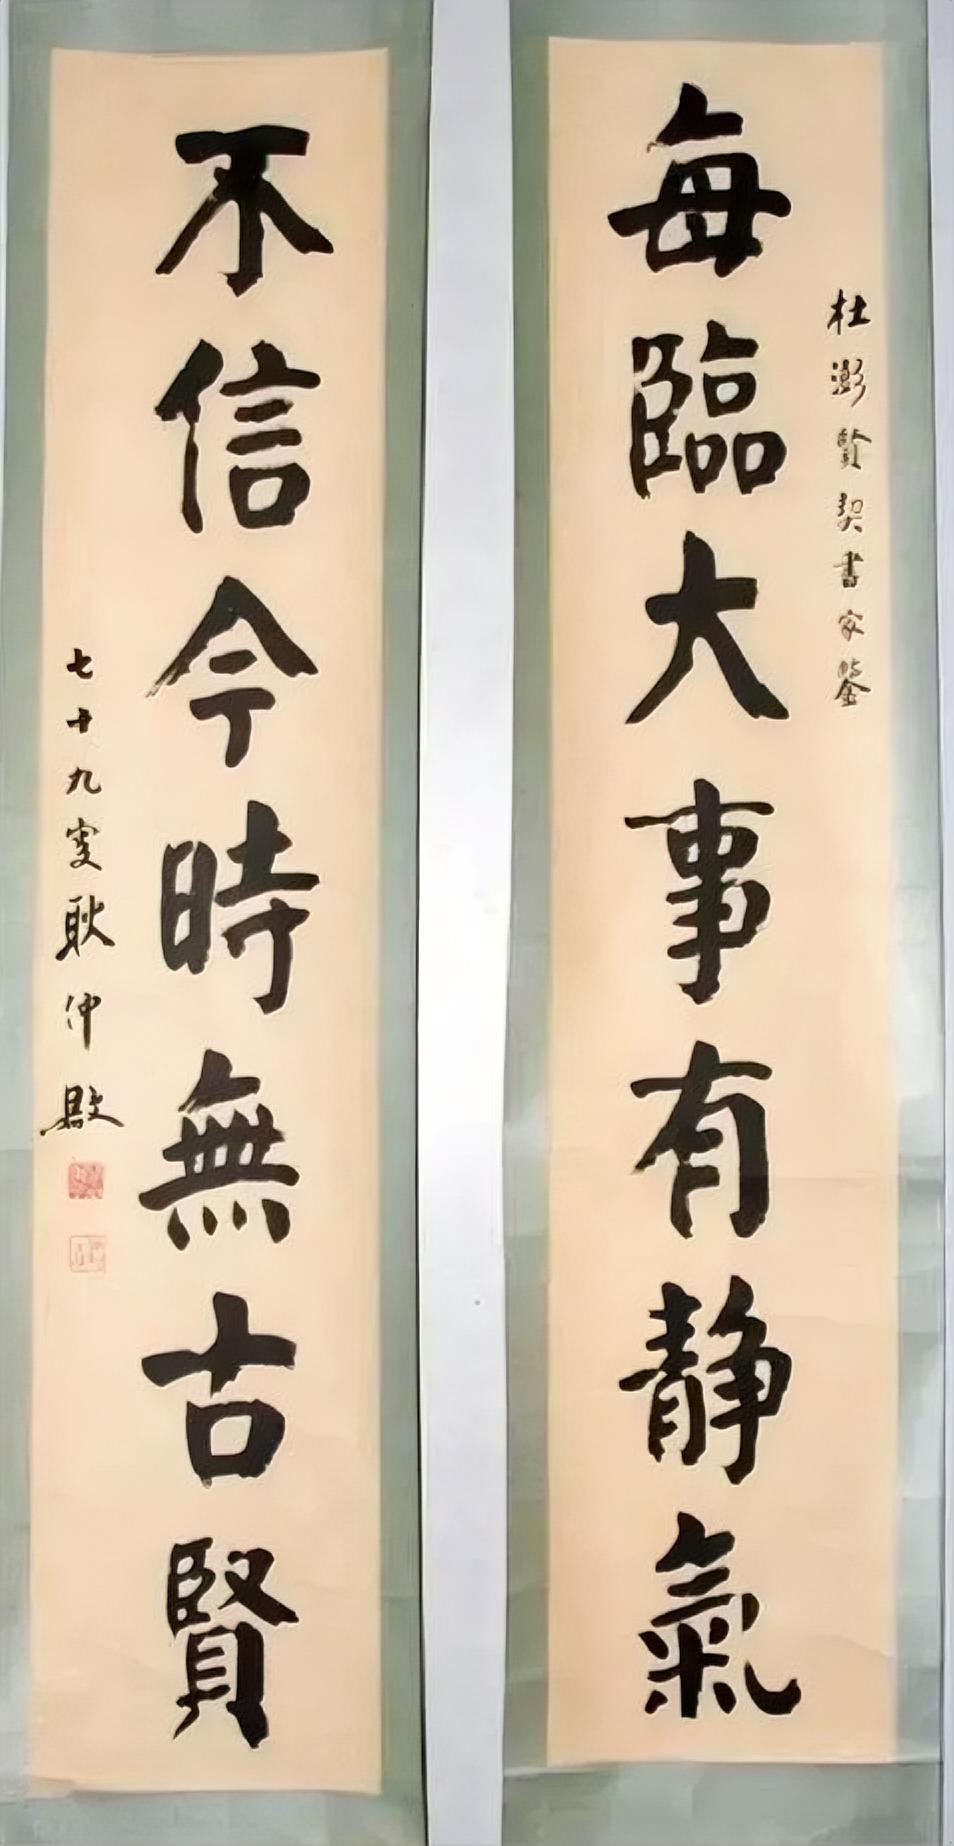 杜澎賢契書家鑒
每臨大事有静氣
不信今時無古賢
七十九叟耿仲敭